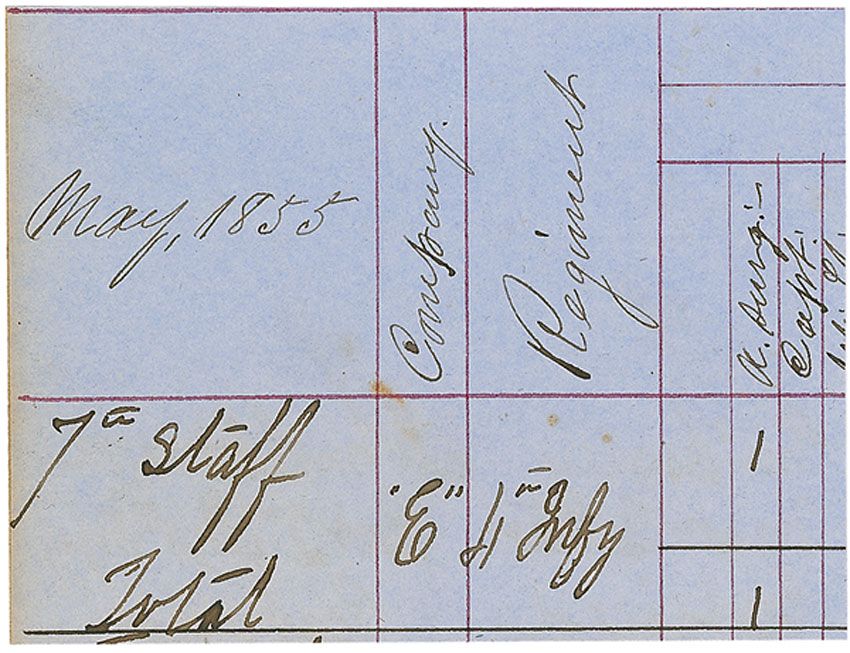 May, 1855
Company.
Regiment
A. Surg:
Capt.
7th Staff
"E" 4th Infy
1
Total
1